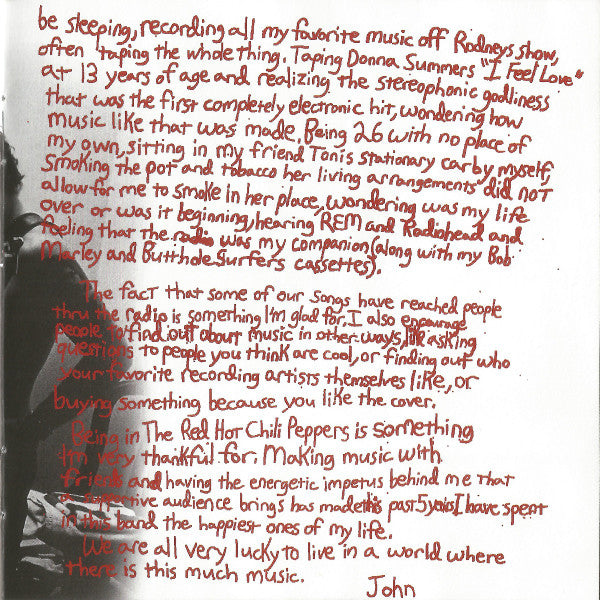 be sleeping, recording all my favorite music off Rodneys show,
often taping the whole thing. Taping Donna Summers "I Feel Love"
at 13 years of age and realizing the stereophonic godliness
that was the first completely electronic hit, wondering how
music like that was made. Being 26 with no place of
my own, sitting in my friend Tonis stationary car by myself,
smoking the pot and tobacco her living arrangements did not
allow for me to smoke in her place, wondering was my life
over or was it beginning, hearing REM and Radiohead and
feeling that the radio was my companion (along with my Bob
Marley and Butthole Surfers cassettes).
The fact that some of our songs have reached people
thru the radio is something I'm glad for. I also encourage
people to find out about music in other ways, like asking
questions to people you think are cool, or finding out who
your favorite recording artists themselves like, or
buying something because you like the cover.
Being in The Red Hot Chili Peppers is something
I'm very thankful for. Making music with
friends and having the energetic impetus behind me that
a supportive audience brings has made this past 5 years I have spent
in this band the happiest ones of my life.
We are all very lucky to live in a world where
there is this much music.
John